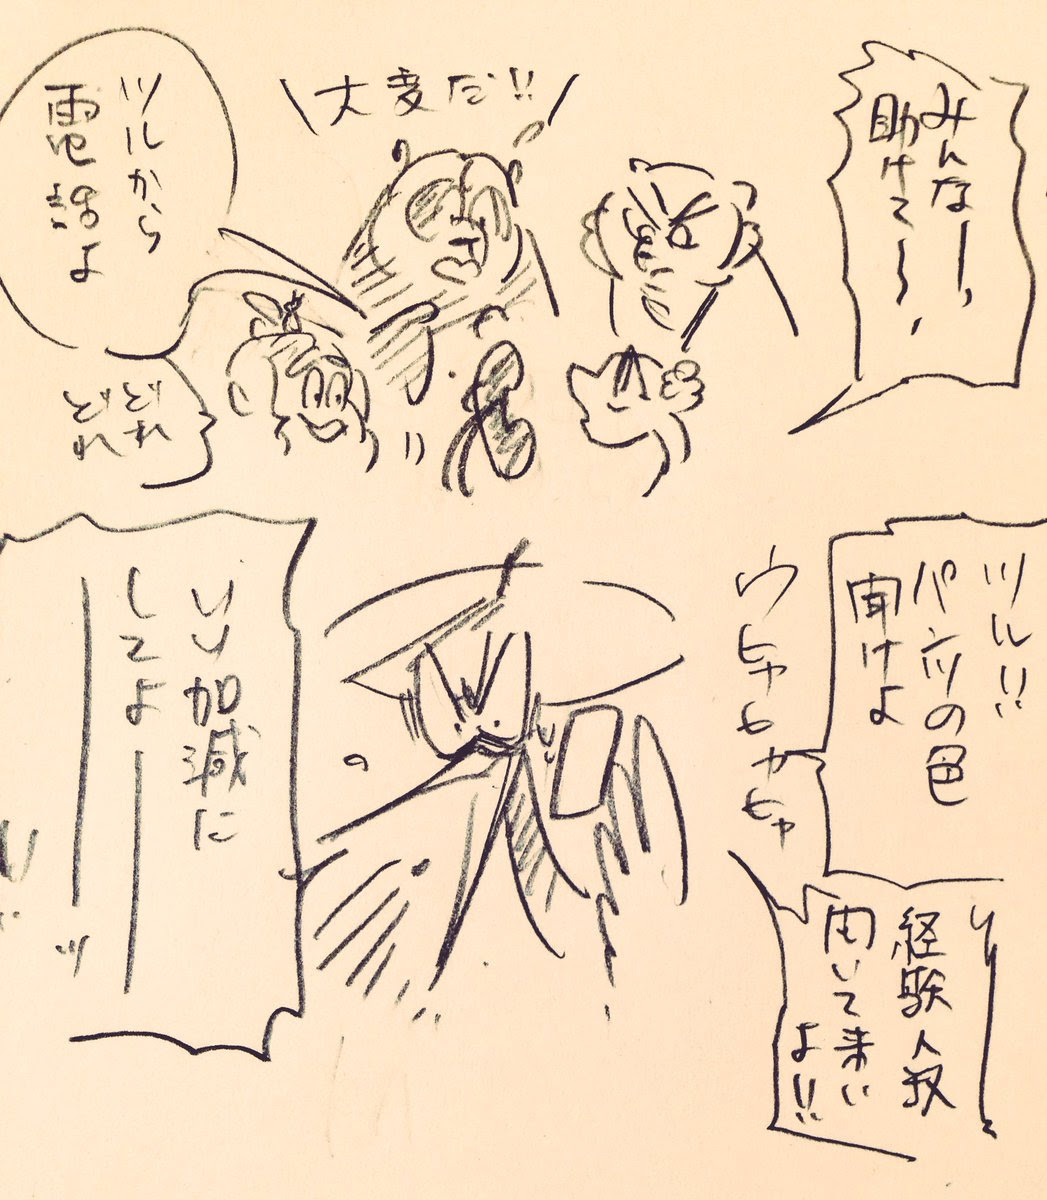 みんなーっ
助けてーっ
大変だ!!
ツルから
電話よ
どれ
どれ
ツル!!
パンツの色
聞けよ
ウヒャヒャヒャ
経験人数
聞いて来い
よ!!
いい加減に
してよ